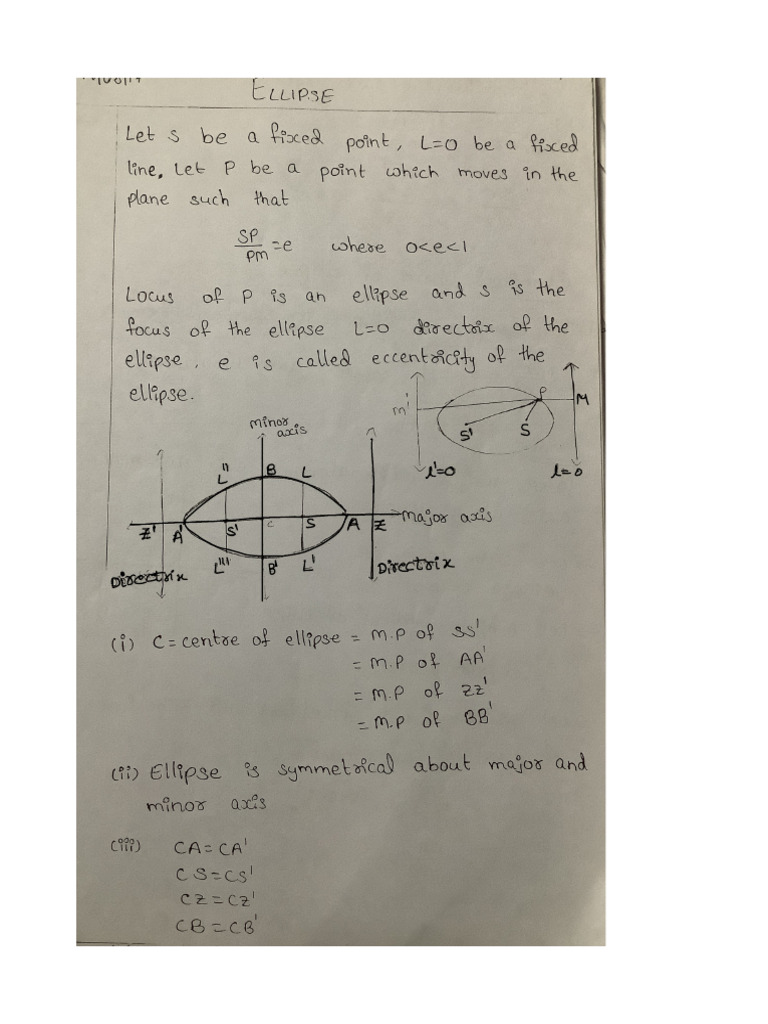 ELLIPSE
Let S be a fixed point, L=0 be a fixed
line. Let P be a point which moves in the
plane such that
SP/PM = e where 0<e<1
Locus of P is an ellipse and S is the
focus of the ellipse L=0 directrix of the
ellipse, e is called eccentricity of the
ellipse.
P
M
m'
S'
S
l'=0
l=0
minor
axis
L''
B
L
Z'
A'
S'
C
S
A
Z
major axis
Directrix
L'''
B'
L'
Directrix
(i) C = centre of ellipse = M.P of SS'
= M.P of AA'
= M.P of ZZ'
= M.P of BB'
(ii) Ellipse is symmetrical about major and
minor axis
(iii) CA = CA'
CS = CS'
CZ = CZ'
CB = CB'